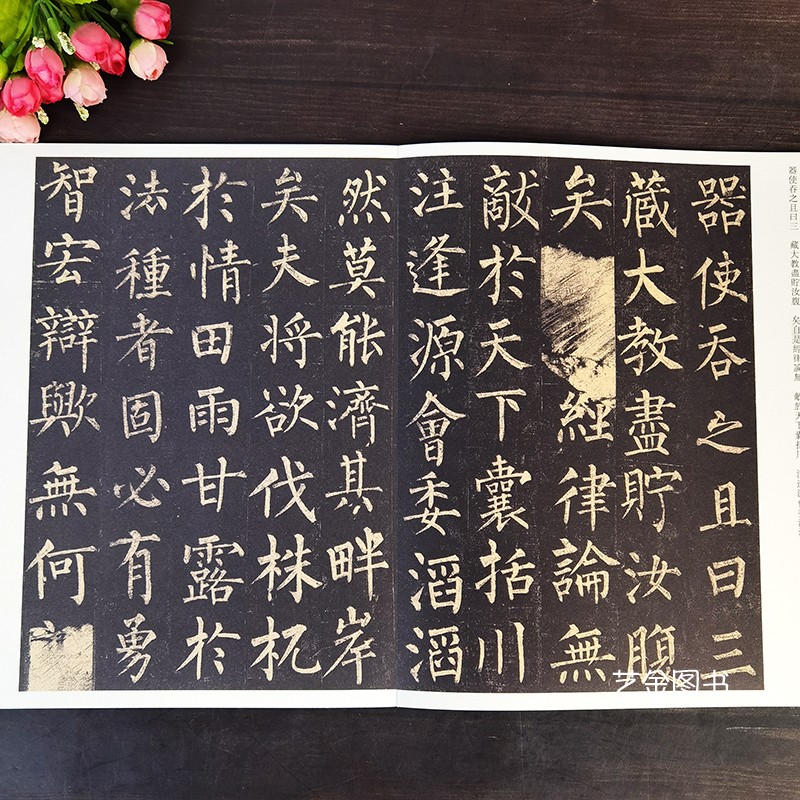 器使吞之且曰三 藏大教盡貯汝腹 矣自是經律論無
器使吞之且曰三
藏大教盡貯汝腹
矣經律論無
敵於天下囊括川
注逢源會委滔滔
然莫能濟其畔岸
矣夫將欲伐株杌
於情田雨甘露於
法種者固必有勇
智宏辯歟無何
艺金图书